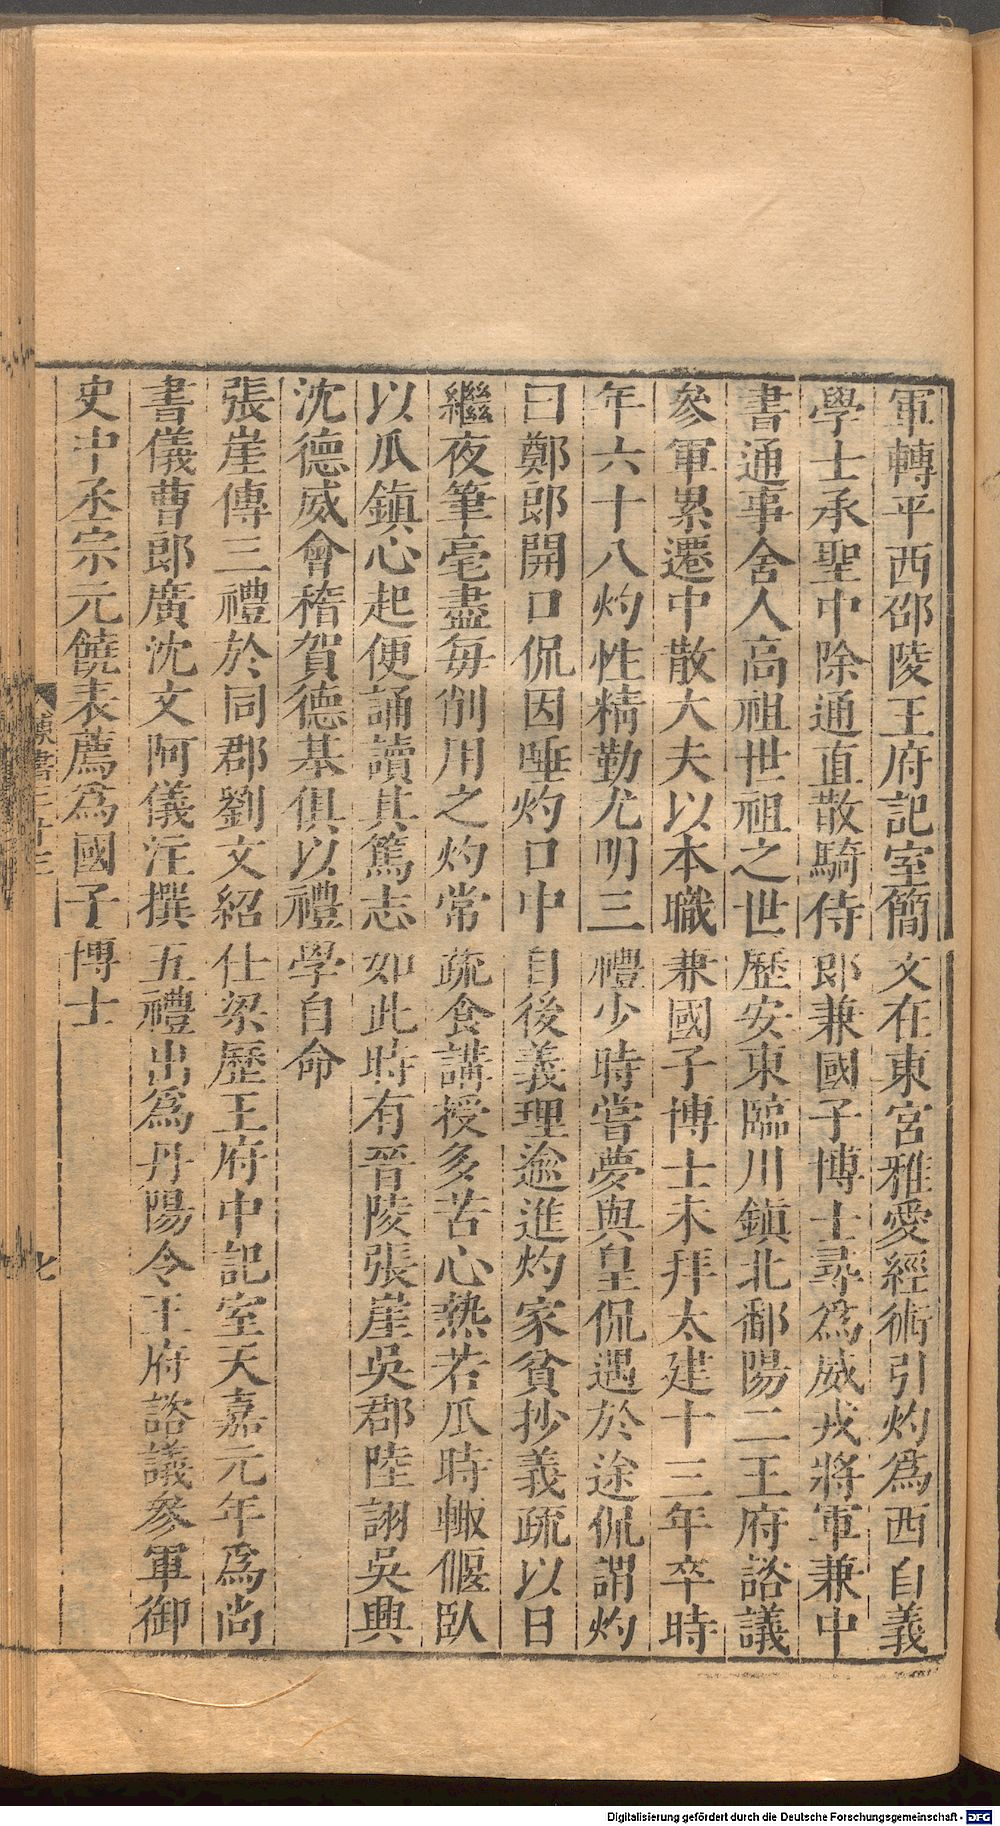 軍轉平西邵陵王府記室簡文在東宮雅愛經術引灼爲西省義
學士承聖中除通直散騎侍郎兼國子博士尋爲威戎將軍兼中
書通事舍人高祖世祖之世歷安東臨川鎮北鄱陽二王府諮議
參軍累遷中散大夫以本職兼國子博士未拜太建十三年卒時
年六十八灼性精勤尤明三禮少時嘗夢與皇侃遇於途侃謂灼
曰鄭郎開口侃因唾灼口中自後義理逾進灼家貧抄義疏以日
繼夜筆毫盡每削用之灼常蔬食講授多苦心熱若瓜時輙偃臥
以瓜鎮心起便誦讀其篤志如此時有晉陵張崖吳郡陸詡吳興
沈德威會稽賀德基俱以禮學自命
張崖傳三禮於同郡劉文紹仕梁歷王府中記室天嘉元年爲尚
書儀曹郎廣沈文阿儀注撰五禮出爲丹陽令王府諮議參軍御
史中丞宗元饒表薦爲國子博士
七
Digitalisierung gefördert durch die Deutsche Forschungsgemeinschaft - DFG